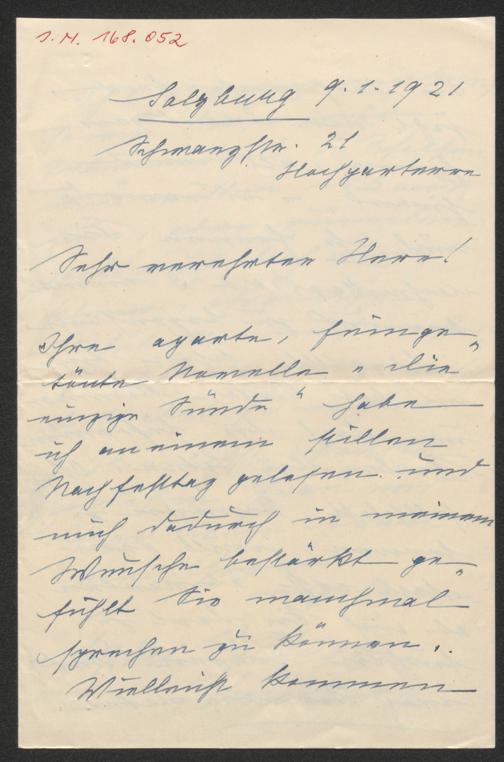 J.N. 168.052
Salzburg 9.1.1921
Schwarzstr. 21
Hochparterre
Sehr verehrter Herr!
Ihre aparte, feinge-
tönte Novelle „Die
einzige Sünde“ habe
ich an einem stillen
Nachfesttag gelesen und
mich dadurch in meinem
Wunsche bestärkt ge-
fühlt Sie manchmal
sprechen zu können.
Vielleicht kommen